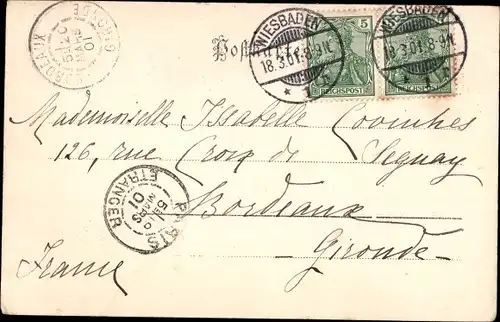 BORDEAUX GIRONDE
5E 20
MARS
01
Postkarte
WIESBADEN
18.3.01.8-9V.
* 1 f
5
REICHSPOST
WIESBADEN
18.3.01.8-9V.
* 1 f
REICHSPOST
Mademoiselle Isabelle Coomhes
126, rue Croix de Seguay
Bordeaux
Gironde
France
PARIS ETRANGER
MARS
01